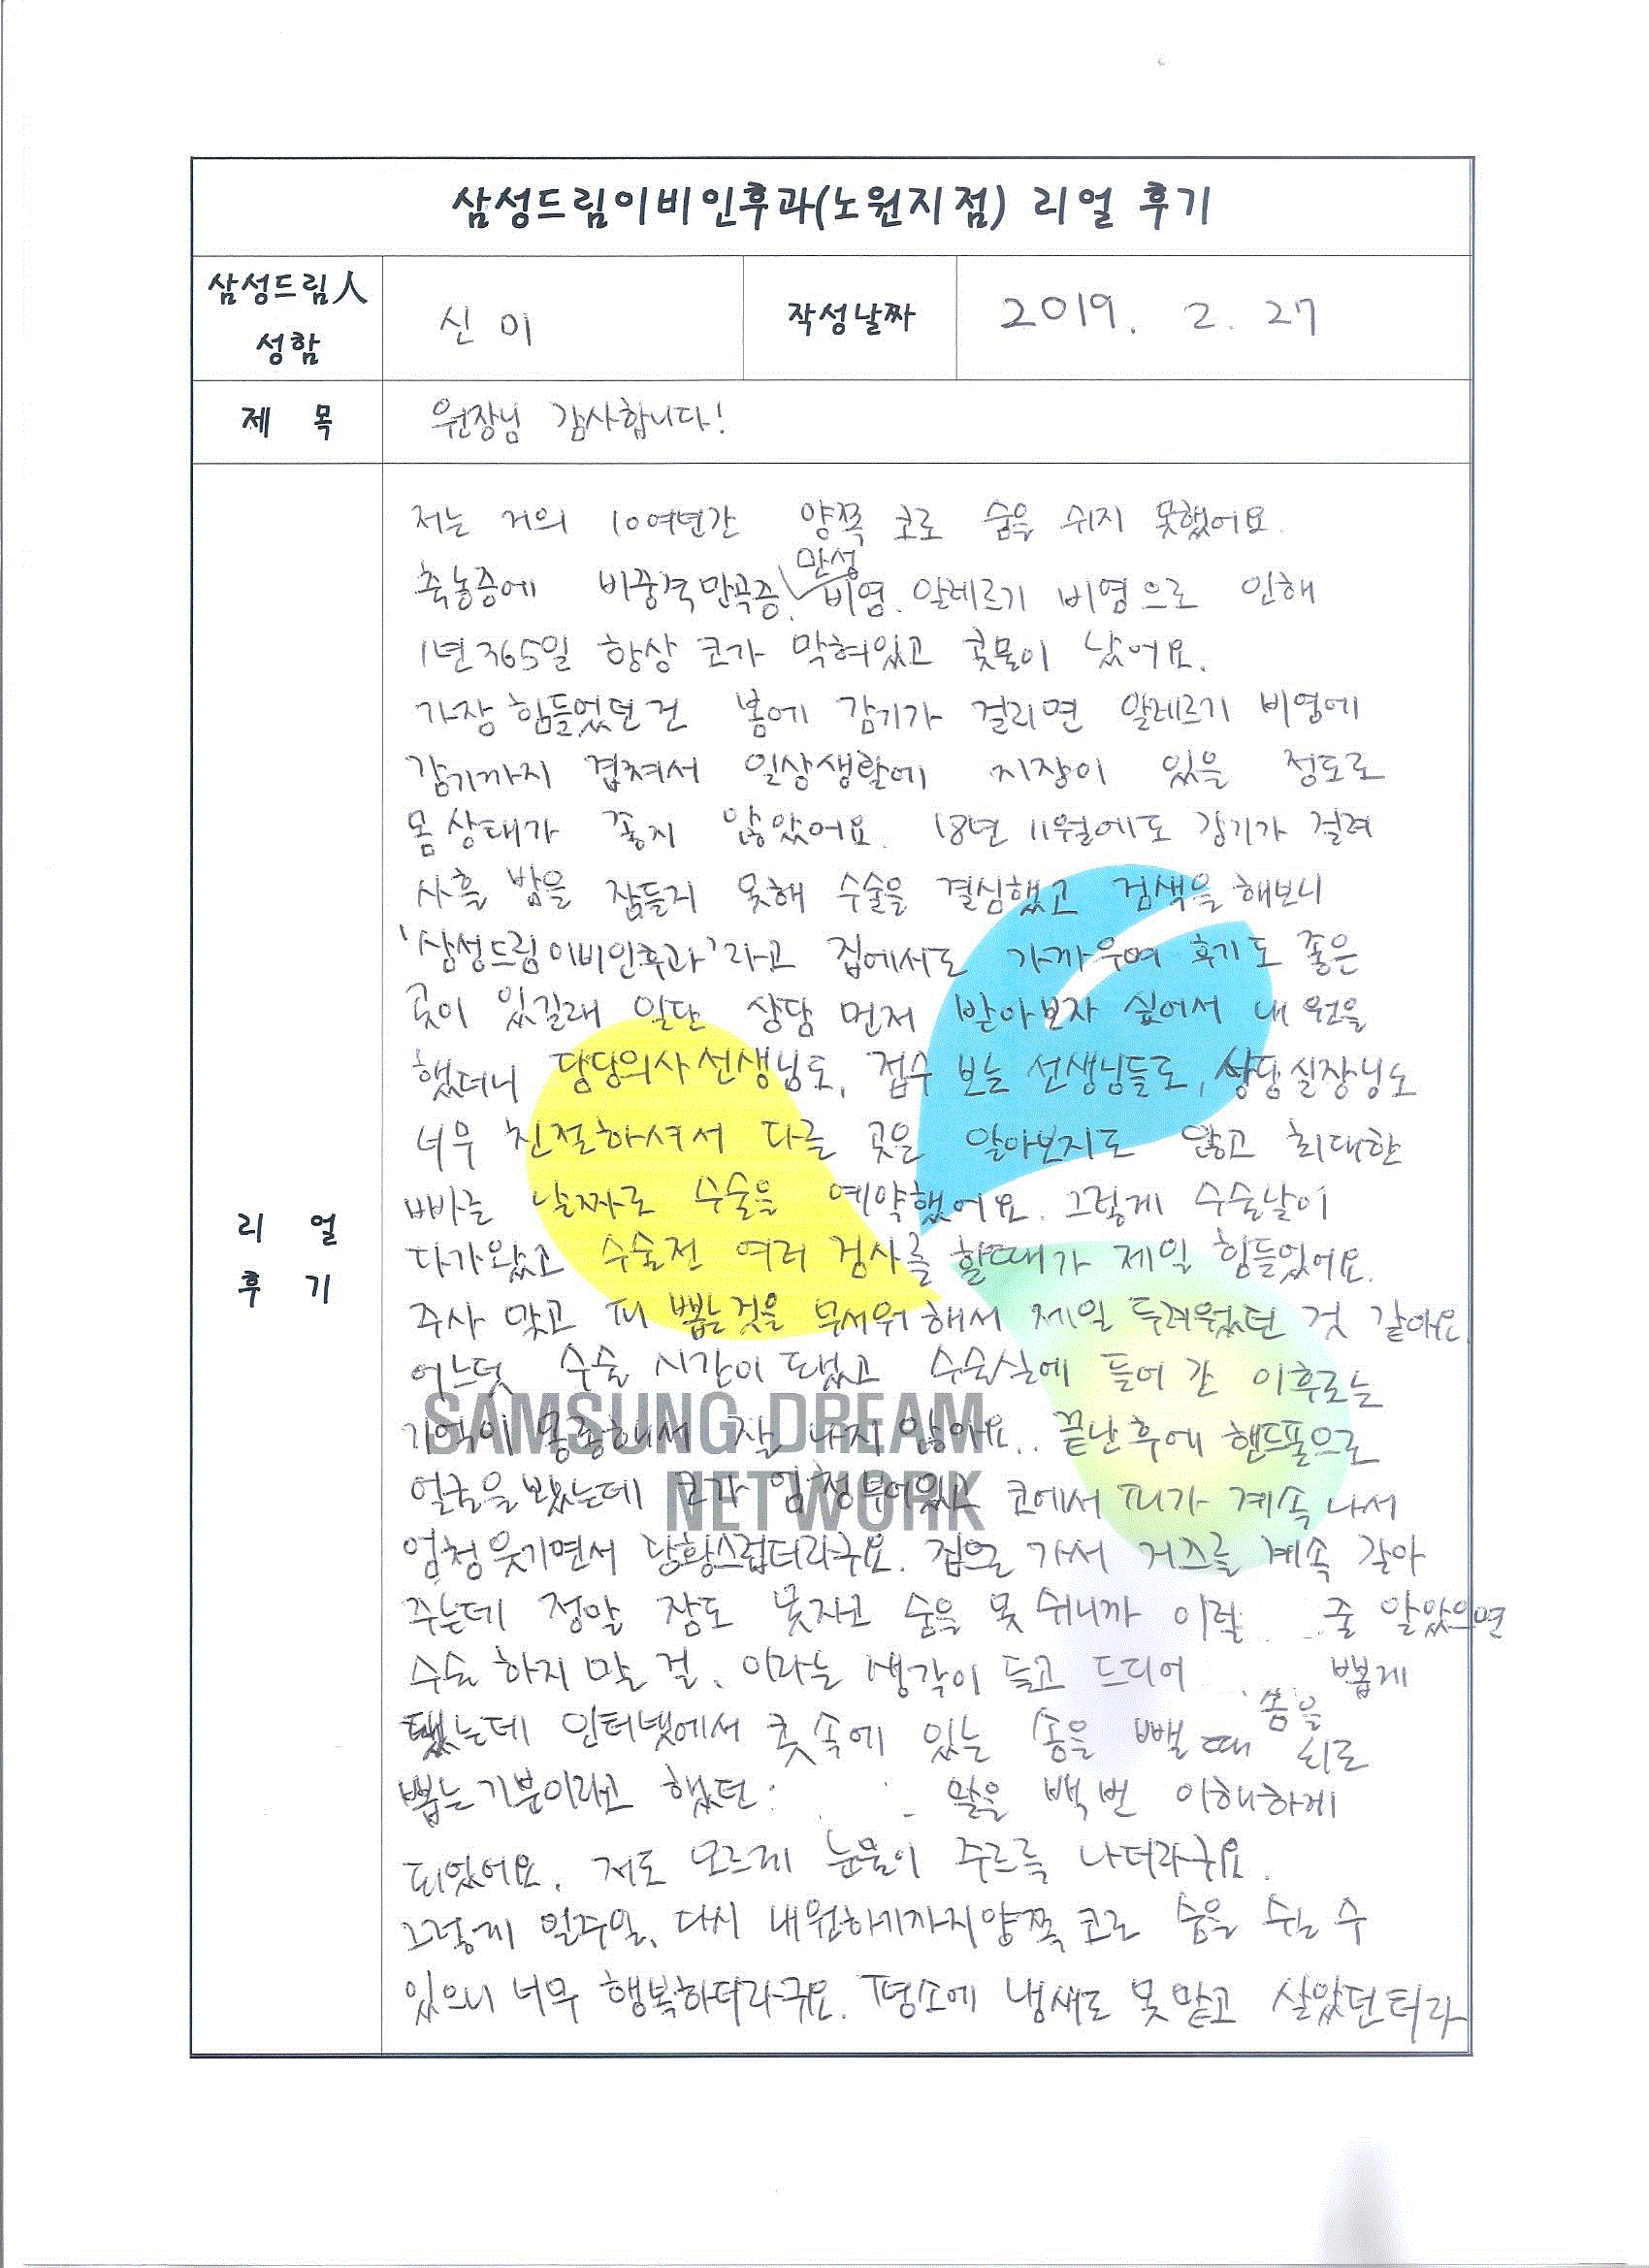 삼성드림이비인후과(노원지점) 리얼 후기
삼성드림人 성함
신 미
작성날짜
2019. 2. 27
제 목
원장님 감사합니다!
리 얼 후 기
저는 거의 10여년간 양쪽 코로 숨을 쉬지 못했어요.
축농증에 비중격만곡증, 만성 비염. 알레르기 비염으로 인해
1년 365일 항상 코가 막혀있고 콧물이 났어요.
가장 힘들었던건 봄에 감기가 걸리면 알레르기 비염에
감기까지 겹쳐서 일상생활에 지장이 있을 정도로
몸상태가 좋지 않았어요. 18년 11월에도 감기가 걸려
사흘 밤을 잠들지 못해 수술을 결심했고 검색을 해보니
'삼성드림이비인후과'라고 집에서도 가까우며 후기도 좋은
곳이 있길래 일단 상담 먼저 받아보자 싶어서 내원을
했더니 담당의사선생님도, 접수 보는 선생님들도, 상담실장님도
너무 친절하셔서 다른 곳은 알아보지도 않고 최대한
빠른 날짜로 수술을 예약했어요. 그렇게 수술날이
다가왔고 수술전 여러 검사를 할때가 제일 힘들었어요.
주사 맞고 피 뽑는것을 무서워해서 제일 두려웠던 것 같아요.
어느덧 수술 시간이 됐고 수술실에 들어간 이후로는
기억이 몽롱해서 잘 나지 않아요.. 끝난후에 핸드폰으로
얼굴을 봤는데 코가 엄청 부어있고 코에서 피가 계속 나서
엄청 웃기면서 당황스럽더라구요. 집으로 가서 거즈를 계속 갈아
주는데 정말 잠도 못자고 숨을 못 쉬니까 이럴 줄 알았으면
수술 하지 말 걸, 이라는 생각이 들고 드디어 솜을 뽑게
됐는데 인터넷에서 콧속에 있는 솜을 뺄 때 뇌로
뽑는 기분이라고 했던 말을 백번 이해하게
되었어요. 저도 모르게 눈물이 주르륵 나더라구요.
그렇게 일주일, 다시 내원하기까지 양쪽 코로 숨을 쉬는 수
있으니 너무 행복하더라구요. 평소에 냄새도 못맡고 살았던터라
SAMSUNG DREAM
NETWORK